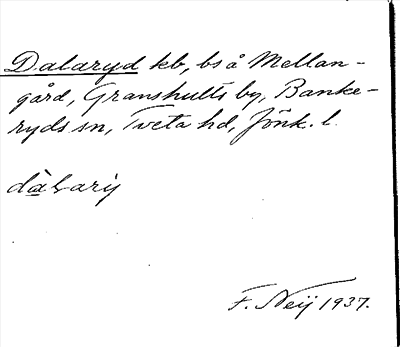 Dalaryd kb, bs å Mellan-
gård, Granshults by, Banke-
ryds sn, Tveta hd, Jönk. l.
dàlarij
F. Neij 1937.